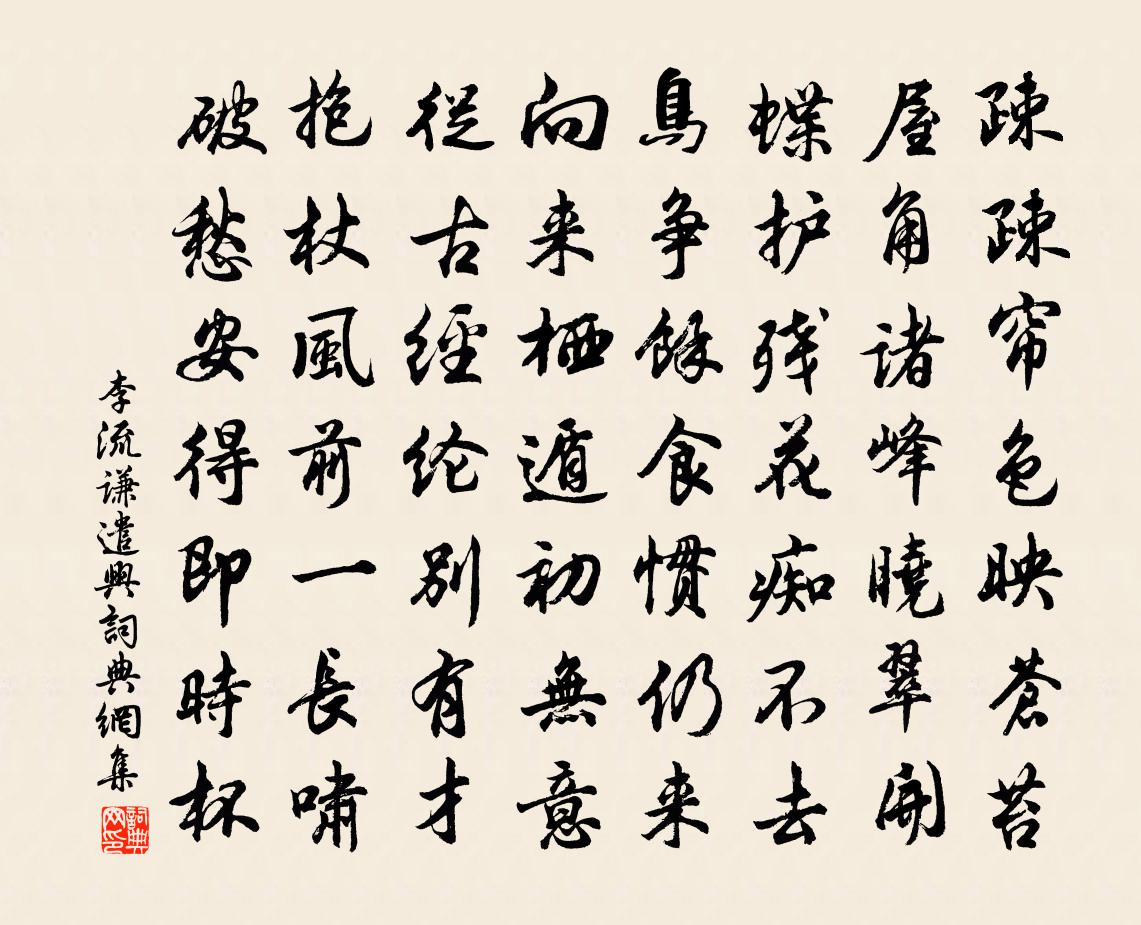 疎疎帘色映蒼苔
屋角诸峰曉翠開
蝶护残花痴不去
鳥争餘食慣仍来
向来栖遁初無意
從古經纶別有才
抱杖風前一長嘯
破愁安得即時杯
李流谦遣興詞典網集
詞典网印